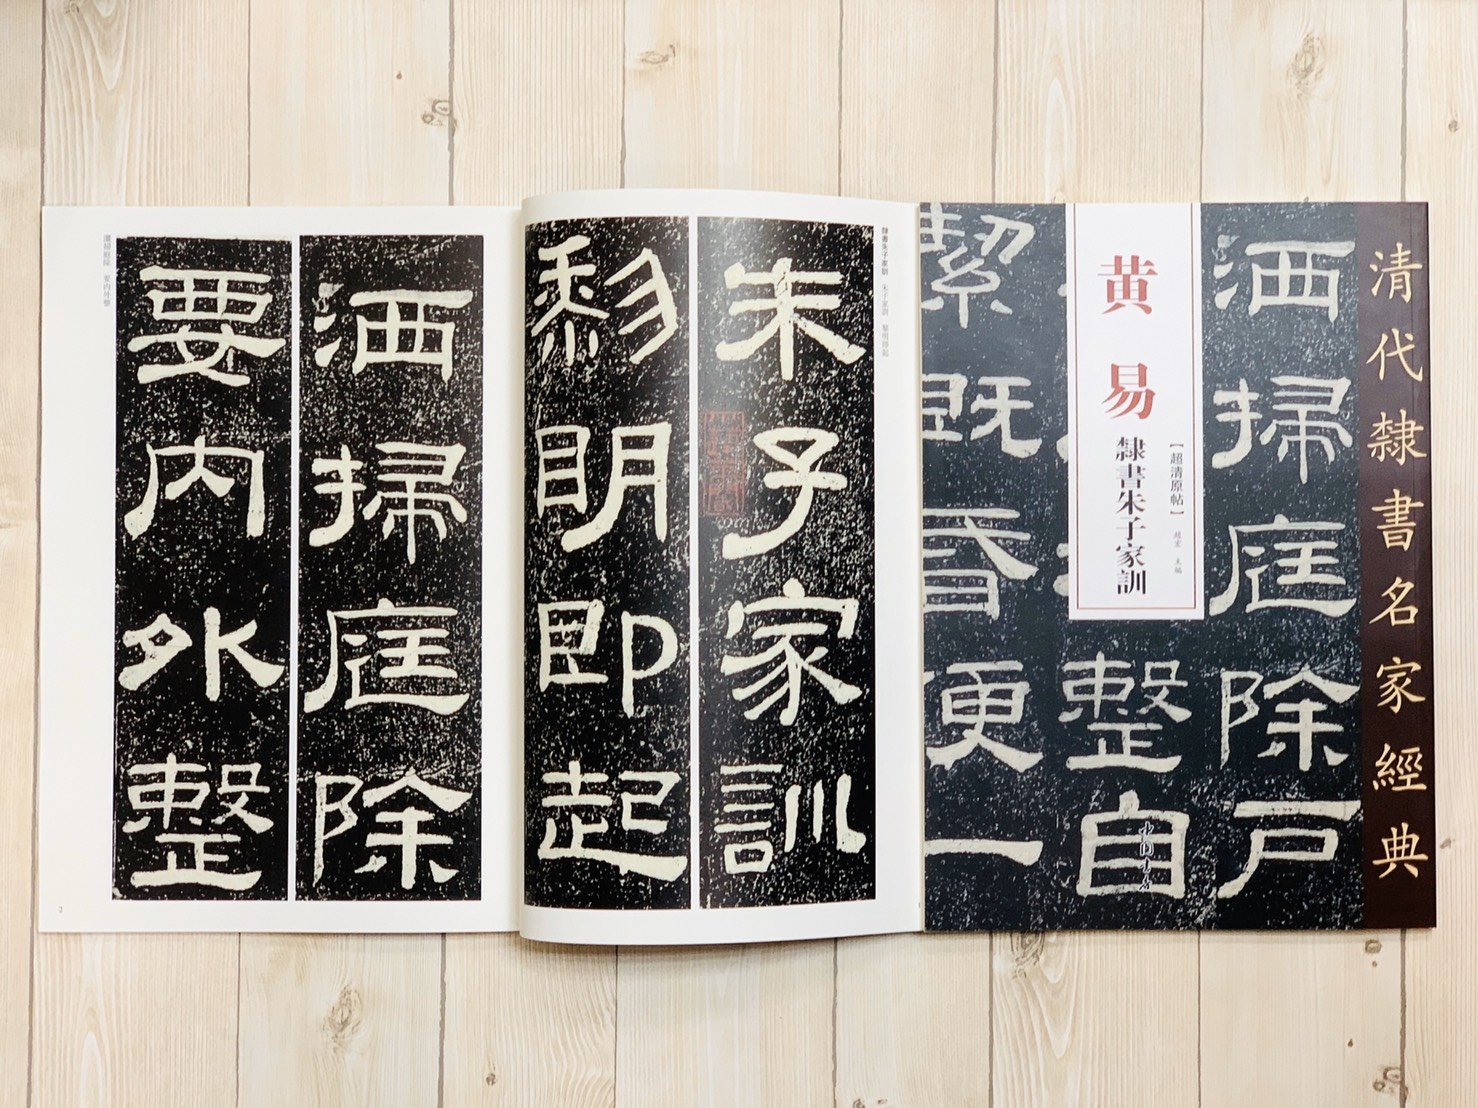 清代隸書名家經典
洒掃庭除戶
黄易
隸書朱子家訓
【超清原帖】
趙宏 主編
整自
中国书店
絜既昏便一
隸書朱子家訓 朱子家訓 黎明即起
朱子家訓
黎眀即起
灑掃庭除 要内外整
洒掃庭除
要内外整